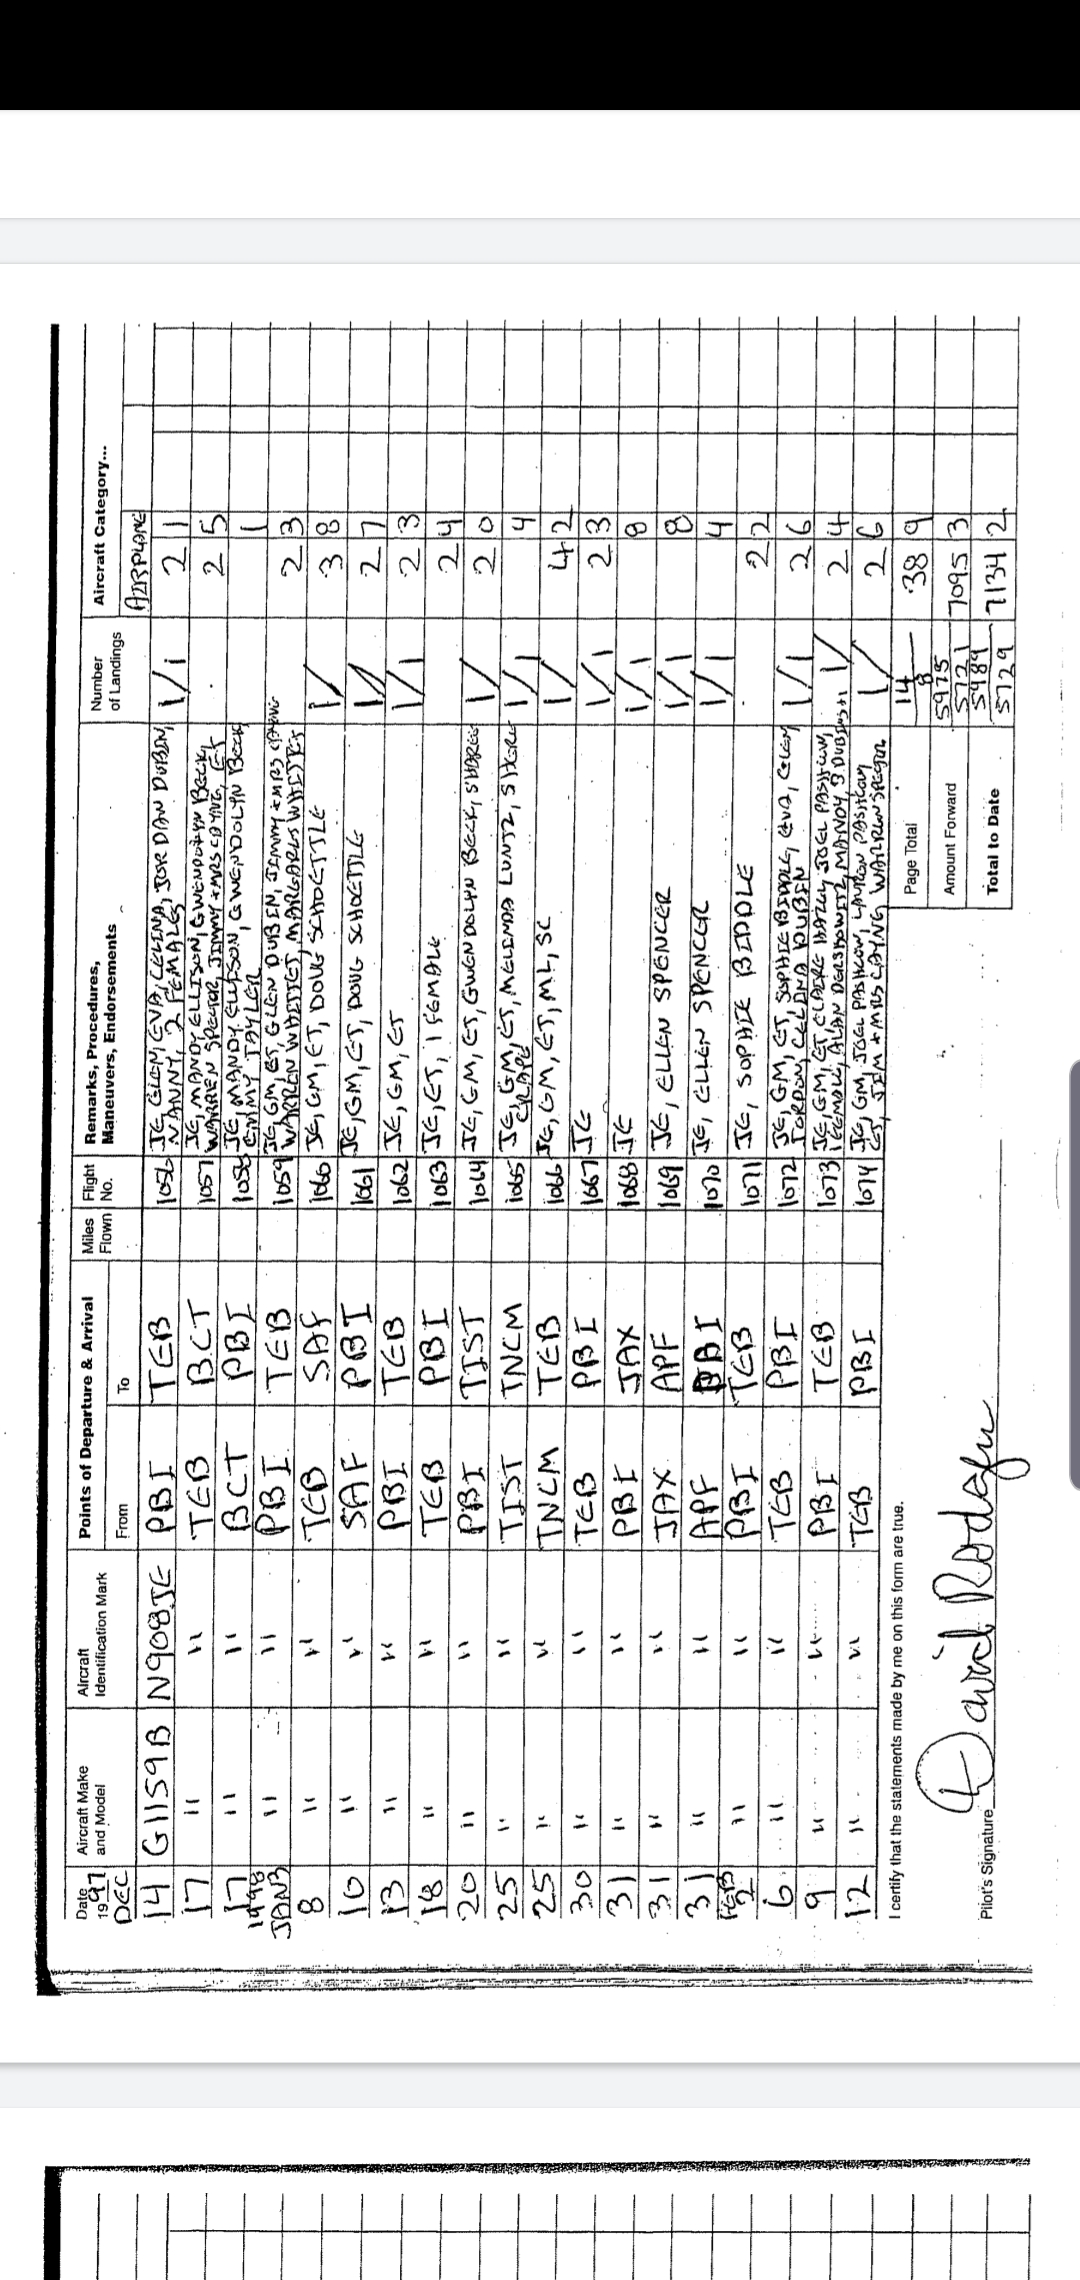 Date 1997 DEC | Aircraft Make and Model | Aircraft Identification Mark | Points of Departure & Arrival From | To | Miles Flown | Flight No. | Remarks, Procedures, Maneuvers, Endorsements | Number of Landings | Aircraft Category... AIRPLANE
14 | G1159B | N908JE | PBI | TEB | | 1056 | JE, GLEN, EVA, CELINA, JORDAN DUBIN, NANNY, 2 FEMALES | 1/1 | 2 1
17 | " | " | TEB | BCT | | 1057 | JE, MANDY ELLISON, GWENDOLYN BECK, WARREN SPECTOR, JIMMY + MRS CAYNE, ET | | 2 5
17 | " | " | BCT | PBI | | 1058 | JE, MANDY ELLISON, GWENDOLYN BECK, EMMY TAYLER | | 1
1998 JAN 3 | " | " | PBI | TEB | | 1059 | JE, GM, ET, GLEN DUBIN, JIMMY + MRS CAYNE | | 2 3
8 | " | " | TEB | SAF | | 1060 | JE, GM, ET, DOUG SCHOETTLE | 1/ | 3 8
10 | " | " | SAF | PBI | | 1061 | JE, GM, ET, DOUG SCHOETTLE | 1/1 | 2 7
13 | " | " | PBI | TEB | | 1062 | JE, GM, ET | 1/1 | 2 3
18 | " | " | TEB | PBI | | 1063 | JE, ET, 1 FEMALE | | 2 4
20 | " | " | PBI | TIST | | 1064 | JE, GM, ET, GWENDOLYN BECK | 1/ | 2 0
25 | " | " | TIST | TNCM | | 1065 | JE, GM, ET, MELINDA LUNTZ | 1/1 | 4
25 | " | " | TNCM | TEB | | 1066 | JE, GM, ET, ML, SC | 1/ | 4 2
30 | " | " | TEB | PBI | | 1067 | JE | 1/1 | 2 3
31 | " | " | PBI | JAX | | 1068 | JE | 1/1 | 8
31 | " | " | JAX | APF | | 1069 | JE, ELLEN SPENCER | 1/1 | 8
31 | " | " | APF | PBI | | 1070 | JE, ELLEN SPENCER | 1/1 | 4
FEB 2 | " | " | PBI | TEB | | 1071 | JE, SOPHIE BIDDLE | | 2 2
6 | " | " | TEB | PBI | | 1072 | JE, GM, ET, SOPHIE BIDDLE, EVA, GLEN, JORDAN, CELINA DUBIN | 1/1 | 2 6
9 | " | " | PBI | TEB | | 1073 | JE, GM, ET, CLAIRE HAZELL, JOEL PASHCOW, 1 FEMALE, ALAN DERSHOWITZ, MANDY | 1/ | 2 4
12 | " | " | TEB | PBI | | 1074 | JE, GM, JOEL PASHCOW, PASHCOW, ET, JIM + MRS CAYNE, WARREN SPECTOR | 1/ | 2 6
I certify that the statements made by me on this form are true.
Page Total | 14 8 | 38 9
Amount Forward | 5975 5721 | 7095 3
Total to Date | 5989 5729 | 7134 2
Pilot's Signature David Rodgers